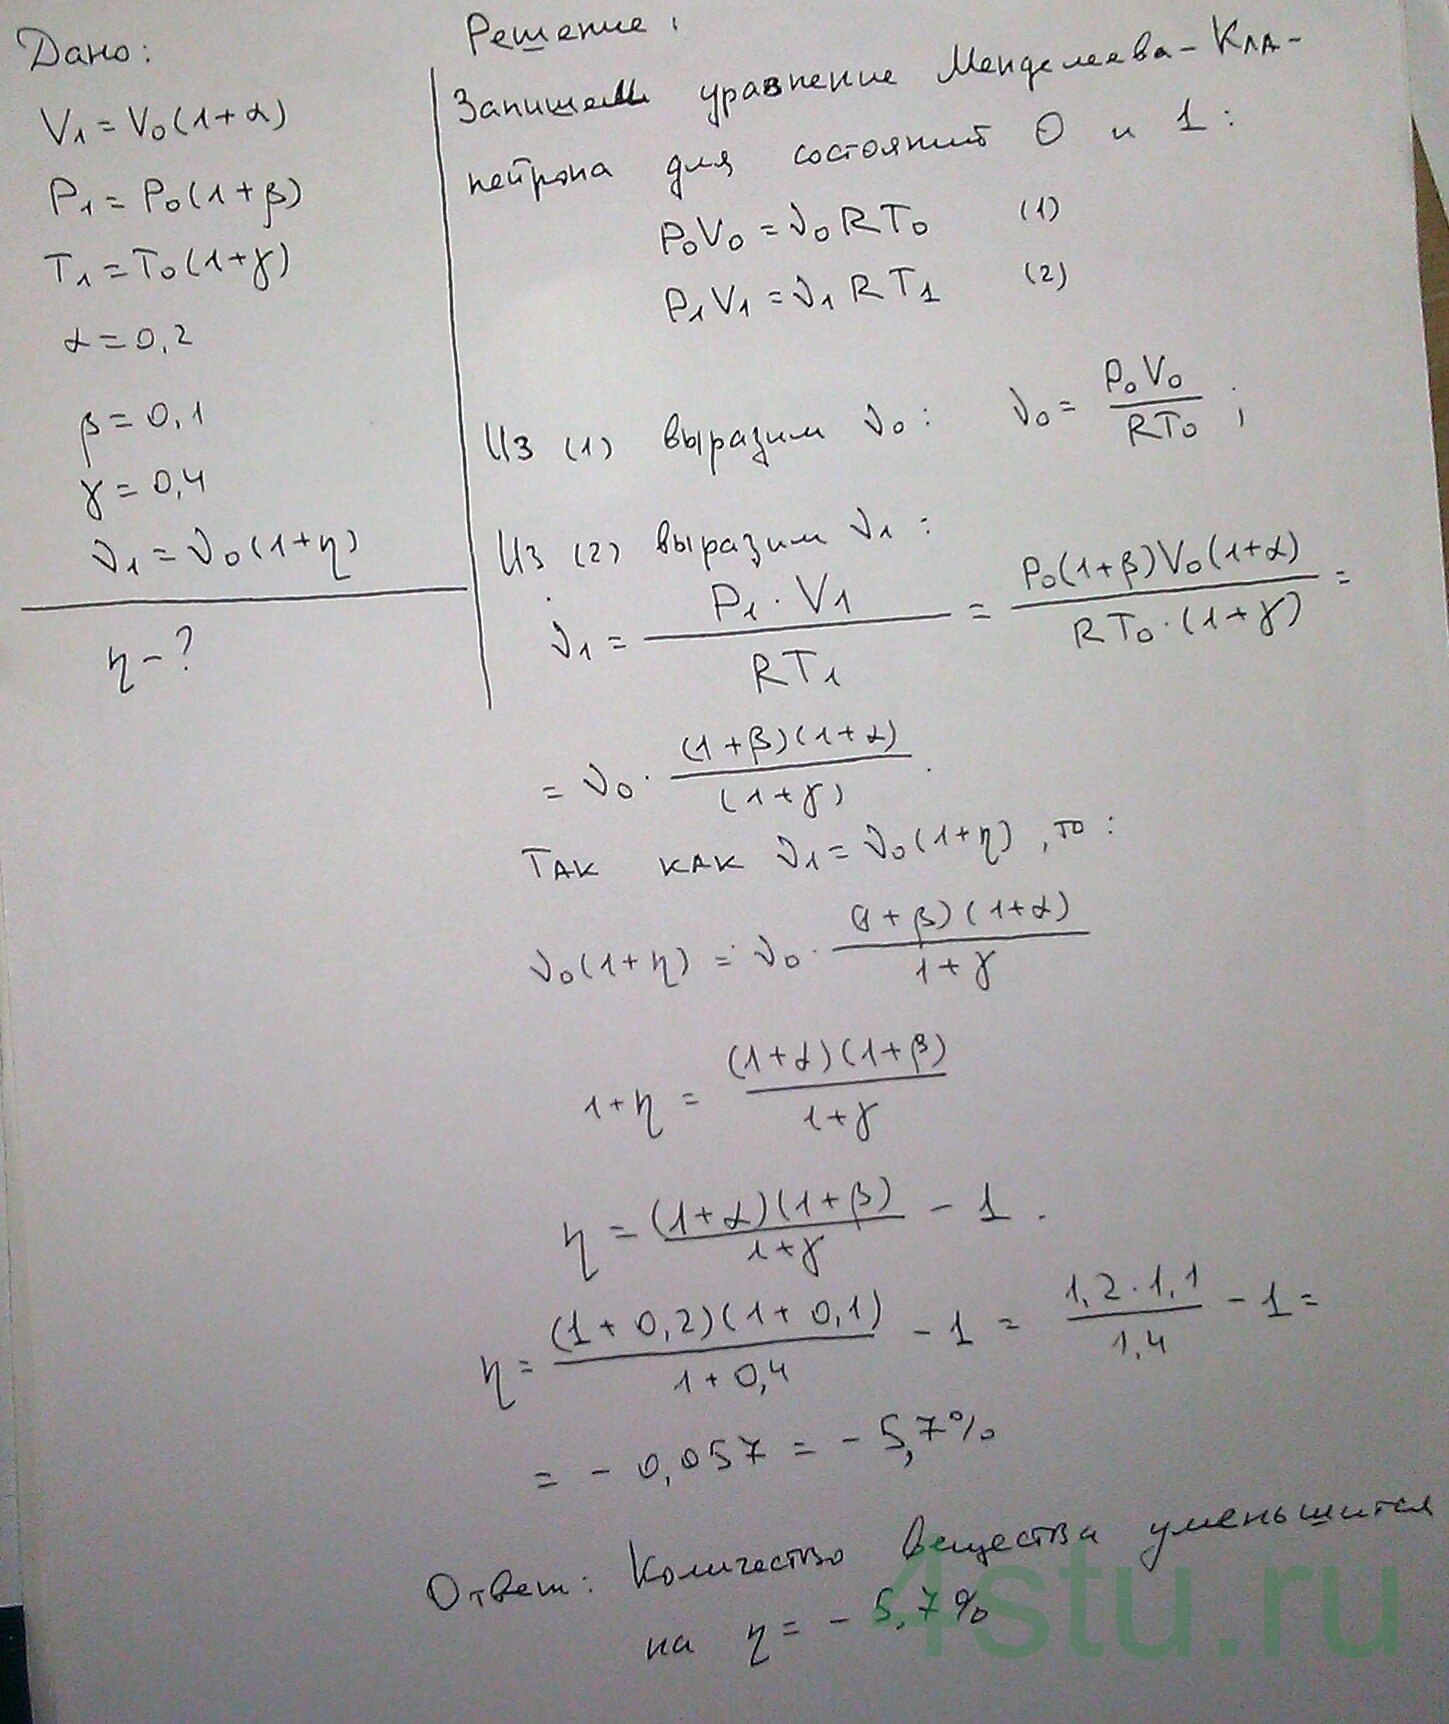 Дано:
V₁ = V₀(1+α)
P₁ = P₀(1+β)
T₁ = T₀(1+γ)
α = 0,2
β = 0,1
γ = 0,4
ν₁ = ν₀(1+η)
η - ?
Решение:
Запишем уравнение Менделеева-Кла-
пейрона для состояний 0 и 1:
P₀V₀ = ν₀RT₀ (1)
P₁V₁ = ν₁RT₁ (2)
Из (1) выразим ν₀: ν₀ = P₀V₀ / RT₀ ;
Из (2) выразим ν₁:
ν₁ = P₁·V₁ / RT₁ = P₀(1+β)V₀(1+α) / RT₀·(1+γ) =
= ν₀ · (1+β)(1+α) / (1+γ) .
Так как ν₁ = ν₀(1+η), то:
ν₀(1+η) = ν₀ · (1+β)(1+α) / 1+γ
1+η = (1+α)(1+β) / 1+γ
η = (1+α)(1+β) / 1+γ - 1 .
η = (1+0,2)(1+0,1) / 1+0,4 - 1 = 1,2·1,1 / 1,4 - 1 =
= - 0,057 = - 5,7%
Ответ: Количество вещества уменьшится
на η = - 5,7%
4stu.ru